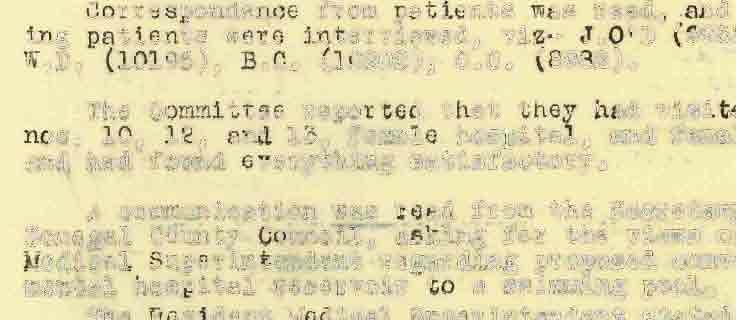 Correspondence from patients was read, and
ing patients were interviewed, viz- J.O'D
W.D. (10195), B.C. C.O.
The Committee reported that they had visite
nos. 10, 12, and 13, female hospital, and
and had found everything satisfactory.
A communication was read from the Secretary
Donegal County Council, asking for the views o
Medical Superintendent regarding proposed
mental hospital reservoir to a swimming pool.
The Resident Medical Superintendent stated